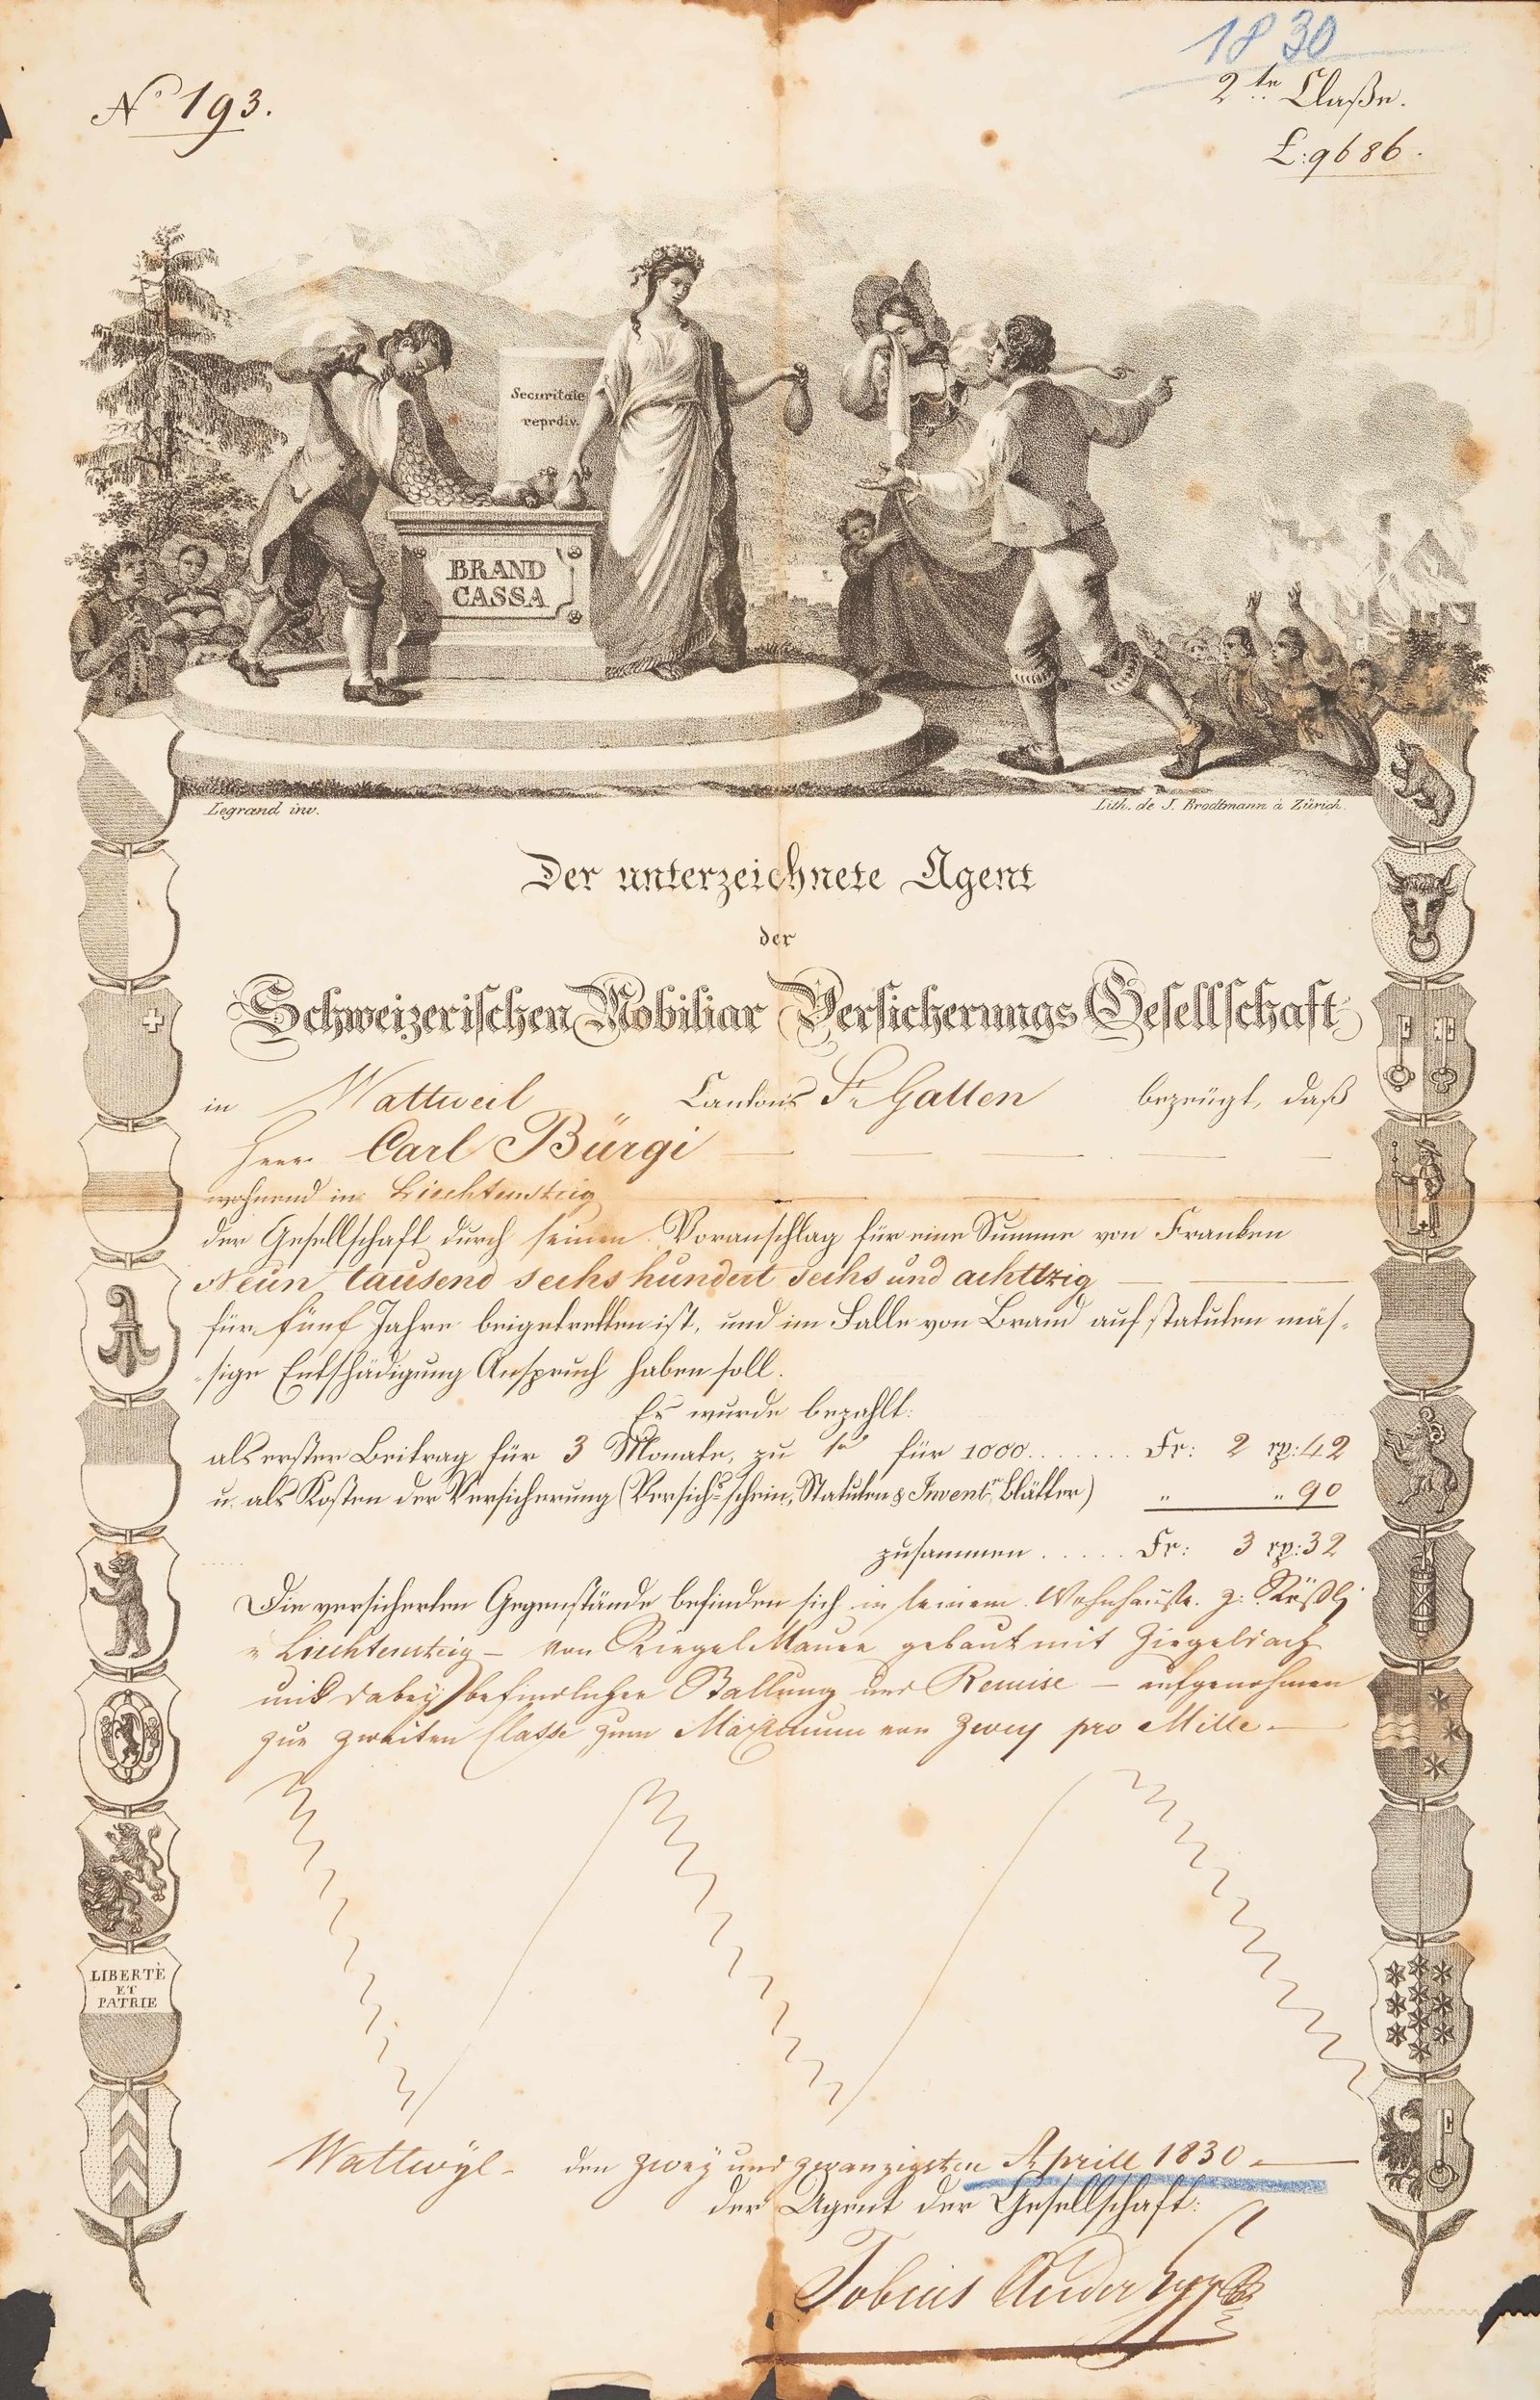 1830
N.º 193.
2.te Claße.
£: 9686.
Securitate
reprdiv.
BRAND
CASSA
Legrand inv.
Lith. de J. Brodtmann à Zürich.
Der unterzeichnete Agent
der
Schweizerischen Mobiliar Versicherungs Gesellschaft
in Wattweil Cantons St Gallen bezeugt, daß
Herr Carl Bürgi
wohnend in Liechtensteig
der Gesellschaft durch seinen Voranschlag für eine Summe von Franken
Neun tausend sechs hundert sechs und achttzig
für fünf Jahre beigetretten ist, und im Falle von Brand auf statuten mäs-
-sige Entschädigung Anspruch haben soll.
Es wurde bezahlt:
als erster Beitrag für 3 Monate, zu für 1000....... Fr: 2 rp: 42
u. als Kosten der Versicherung (Versichs schein, Statuten & Inventr Blätter) " " 90
zusammen ..... Fr: 3 rp: 32
Die versicherten Gegenstände befinden sich in seinem Wohnhause z: Rößli
" Liechtensteig – von Riegel Mauer gebaut mit Ziegeldach
und dabey befindlicher Stallung und Remise – aufgenohmen
zur zweiten Classe zum Maximum von Zwey pro Mille –
LIBERTÈ
ET
PATRIE
Wattwÿl – den zweÿ und zwanzigsten Aprill 1830 –
der Agent der Gesellschaft:
Tobias